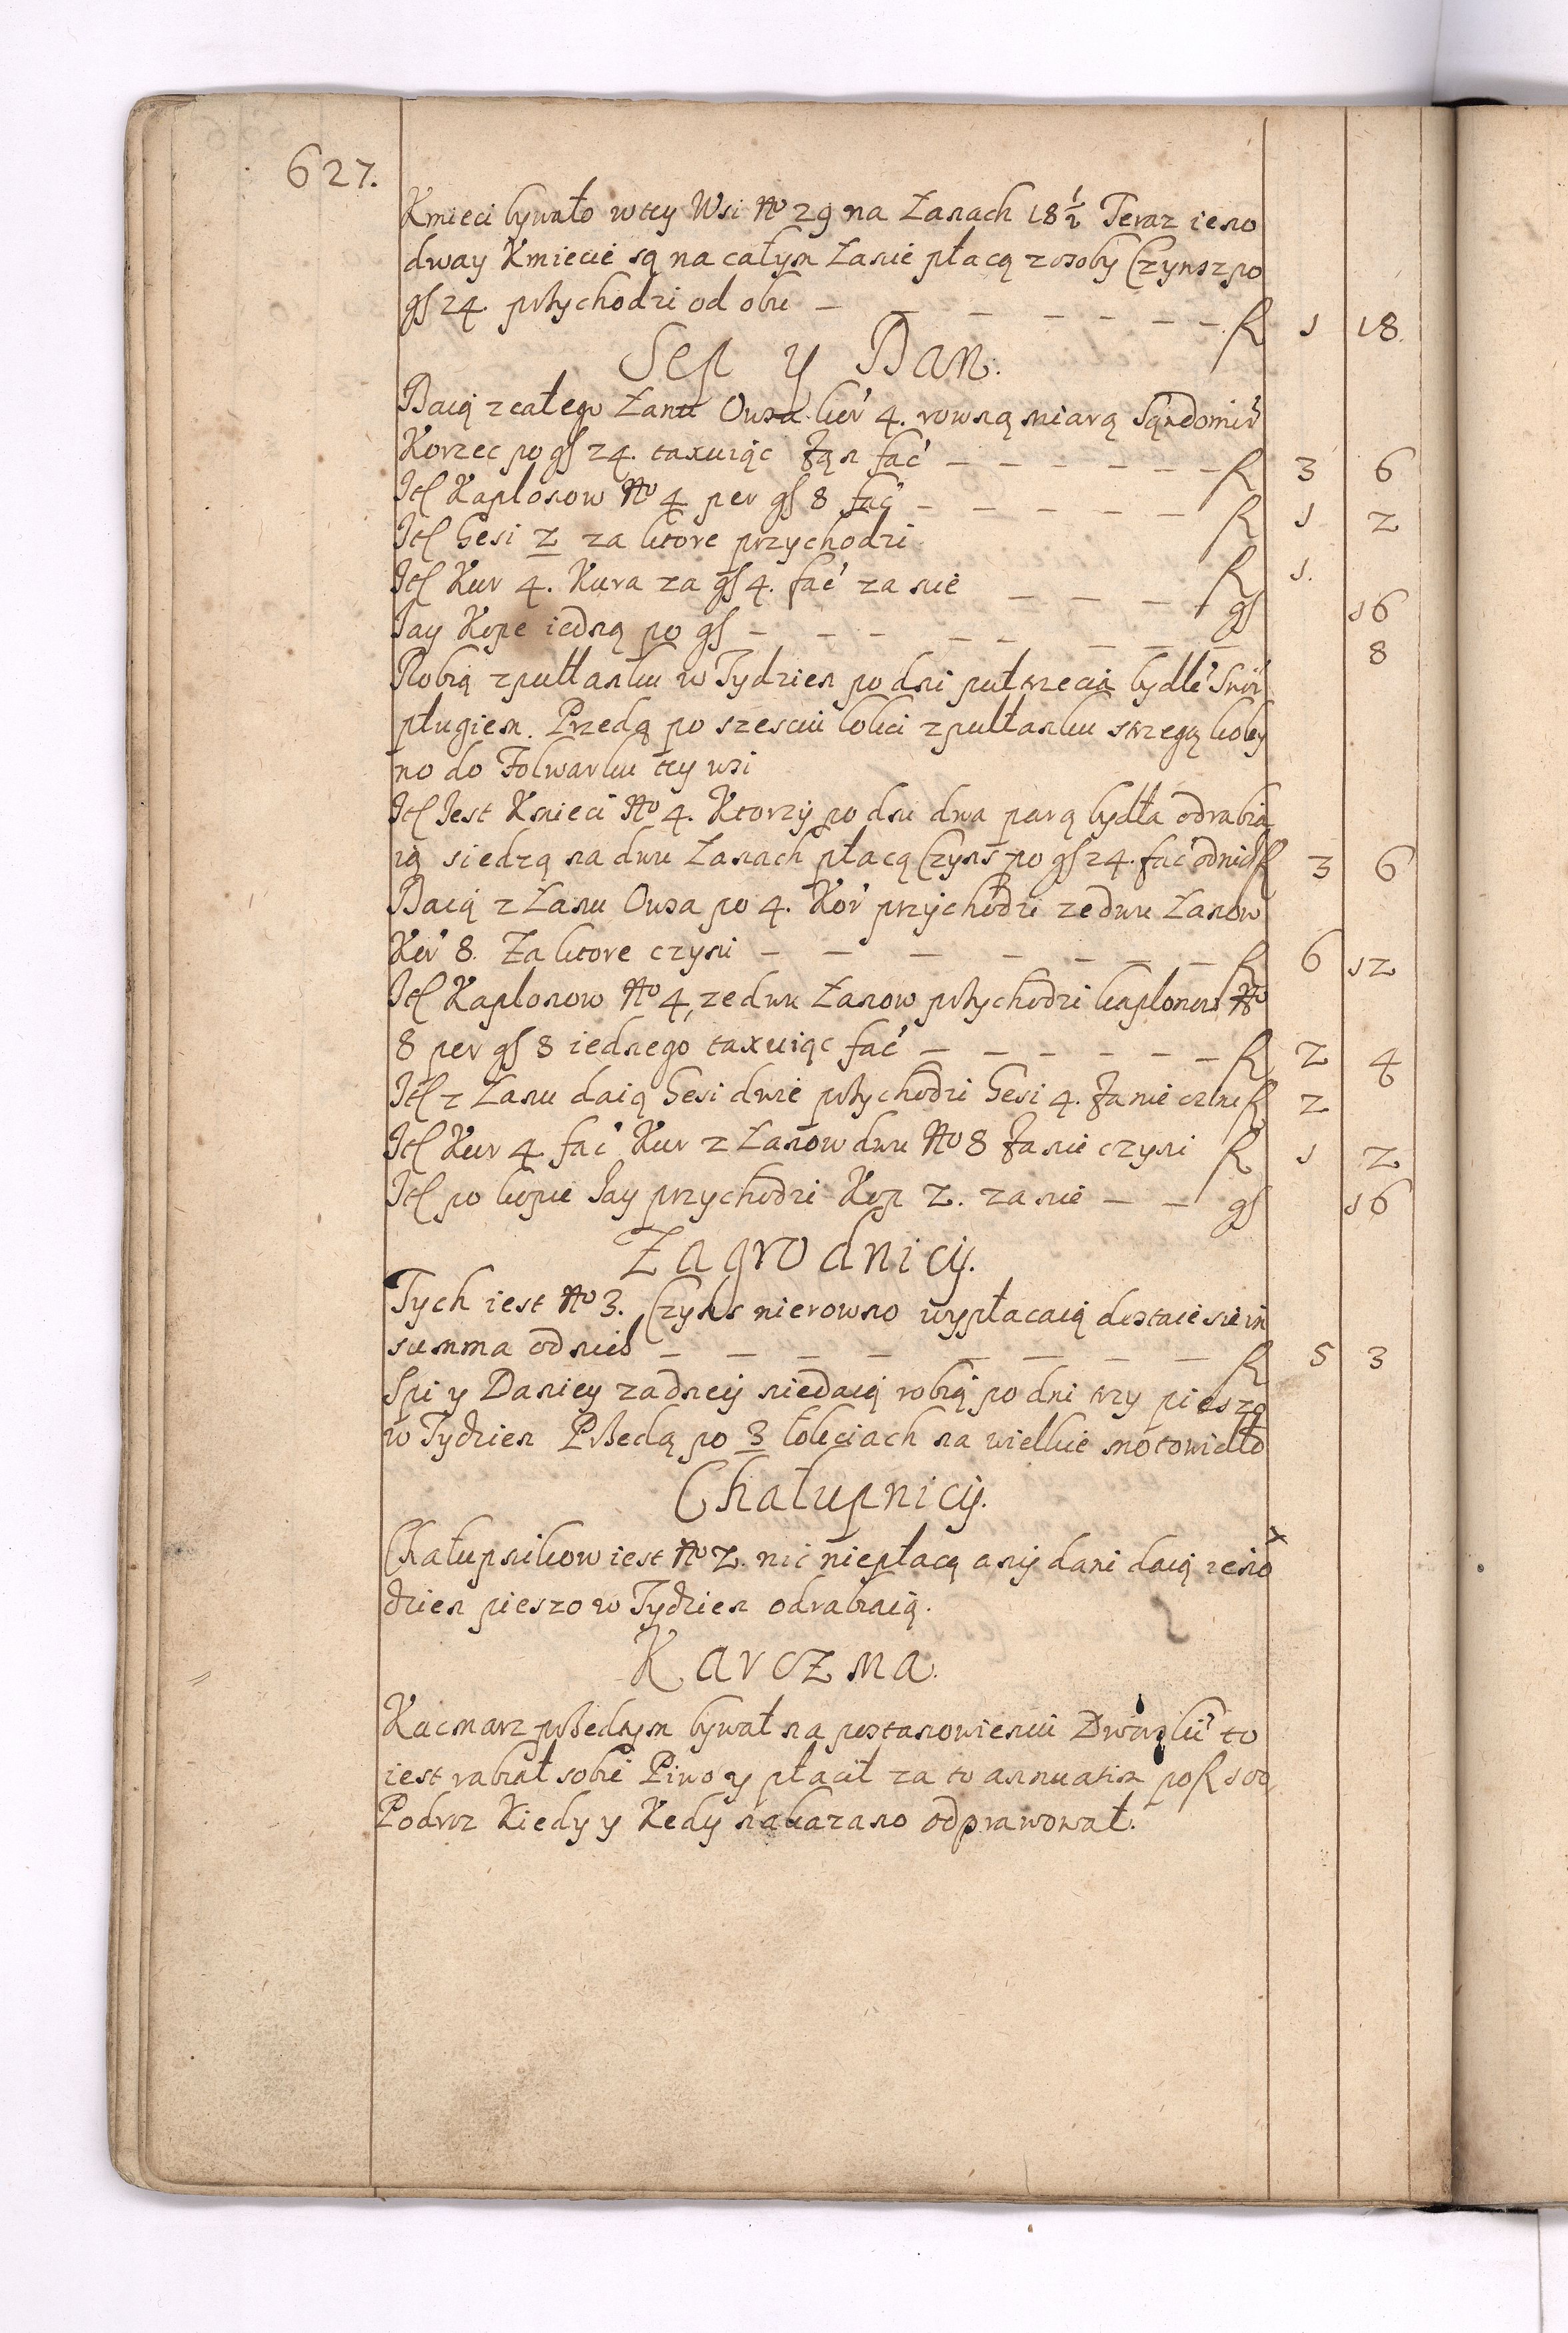 627.
Kmieci bywało w tey Wsi No 29 na Łanach 18 1/2 Teraz ieno
dway Kmiecie są na całym Łanie płacą z osoby Czynsz po
gs 24. przychodzi od obu – – – – – – – R 1 18.
Sep y Dan.
Daią z całego Łanu Owsa kor 4. rowną miarą Sandomir
Korzec po gs 24. taxuiąc Zan fac – – – – – – R 3 6
Itl Kapłonow No 4 per gs 8 fac – – – – – R 1 2
Itl Gesi 2 za ktore przychodzi R 1.
Itl Kur 4. Kura za gs 4. fac za nie – – – gs 16
Iay Kope iedną po gs – – – – – – – – 8
Robią z pułłanku w Tydzien po dni pułtrzecia bydłe
pługiem. Przedą po szesciu łokci z pułłanku strzegą koley
no do Folwarku tey wsi
Itl Iest Kmieci No 4. Ktorzy po dni dwa parą bydła odrabia
ią siedzą na dwu Łanach płacą Czyns po gs 24. fac od nich R 3 6
Daią z Łanu Owsa po 4. Kor przychodzi ze dwu Łanow
Kor 8. Za ktore czyni – – – – – – – R 6 12
Itl Kapłonow No 4, ze dwu Łanow przychodzi kapłonow No
8 per gs 8 iednego taxuiąc fac – – – – – – R 2 4
Itl z Łanu daią Gesi dwie przychodzi Gesi 4. Za nie czni R 2
Itl Kur 4 fac Kur z Łanow dwu No 8 Za nie czyni R 1 2
Itl po kopie Iay przychodzi Kop 2. za nie – – gs 16
Zagrodnicy.
Tych iest No 3. Czyns nierowno wypłacaią dostaie sie in
summa od nich – – – – – – – – R 5 3
Spi y Daniey zadney niedaią robią po dni trzy pieszo
w Tydzien Przedą po 3 łokciach na wielkie motowidło
Chałupnicy.
Chałupnikow iest No 2. nic niepłacą any dani daią ieno
dzien pieszo w Tydzien odrabiaią.
Karczma.
Kacmarz przedtym bywał na postanowieniu Dworsku to
iest rabiał sobie Piwo y płacił za to annuatim po R 100,
Podroz Kiedy y Kedy nakazano odprawował.